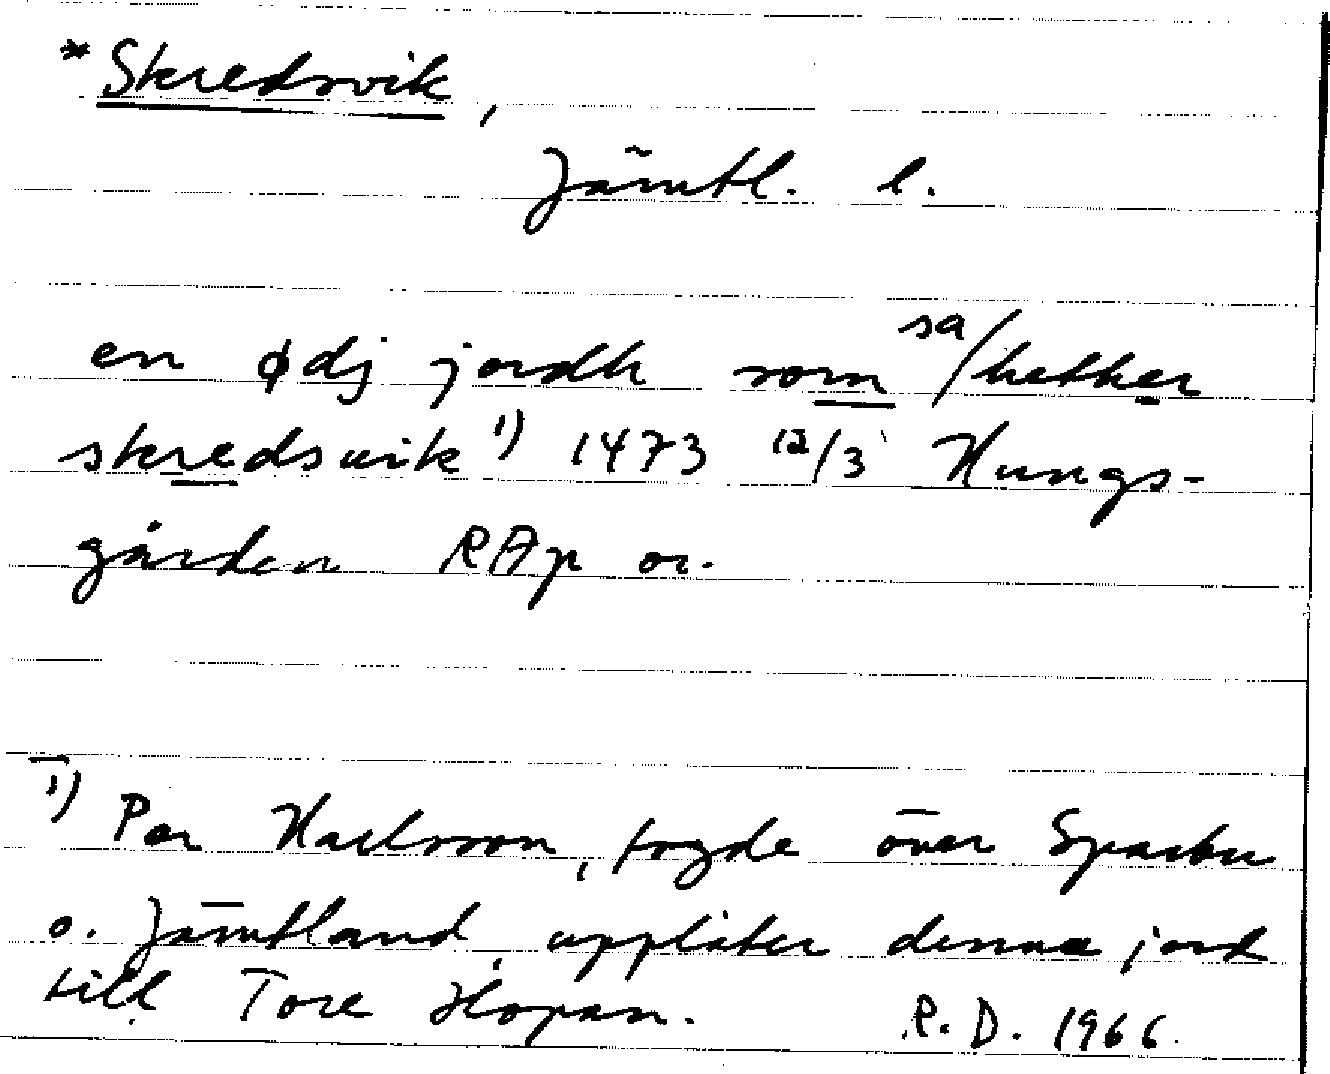 *Skredsvik,
Jämtl. l.
en ødj jordh som sa/hether
skredsuik 1) 1473 12/3 Hungs-
gården RAp or.
1) Per Karlsson, fogde över Sparbu
o. Jämtland, upplåter denna jord
till Tore Hopan. R.D. 1966.